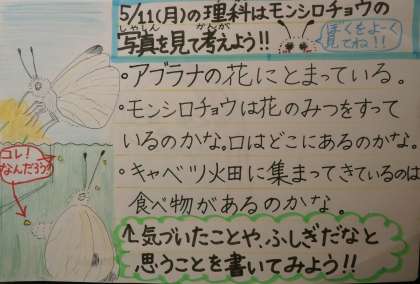 5/11(月)の理科はモンシロチョウの
写真を見て考えよう!!
しゃしん
かんが
ぼくをよーく
見てね!!
・アブラナの花にとまっている。
・モンシロチョウは花のみつをすって
いるのかな。口はどこにあるのかな。
・キャベツ畑に集まってきているのは
食べ物があるのかな。
コレ!
なんだろう?
↑気づいたことや、ふしぎだなと
思うことを書いてみよう!!